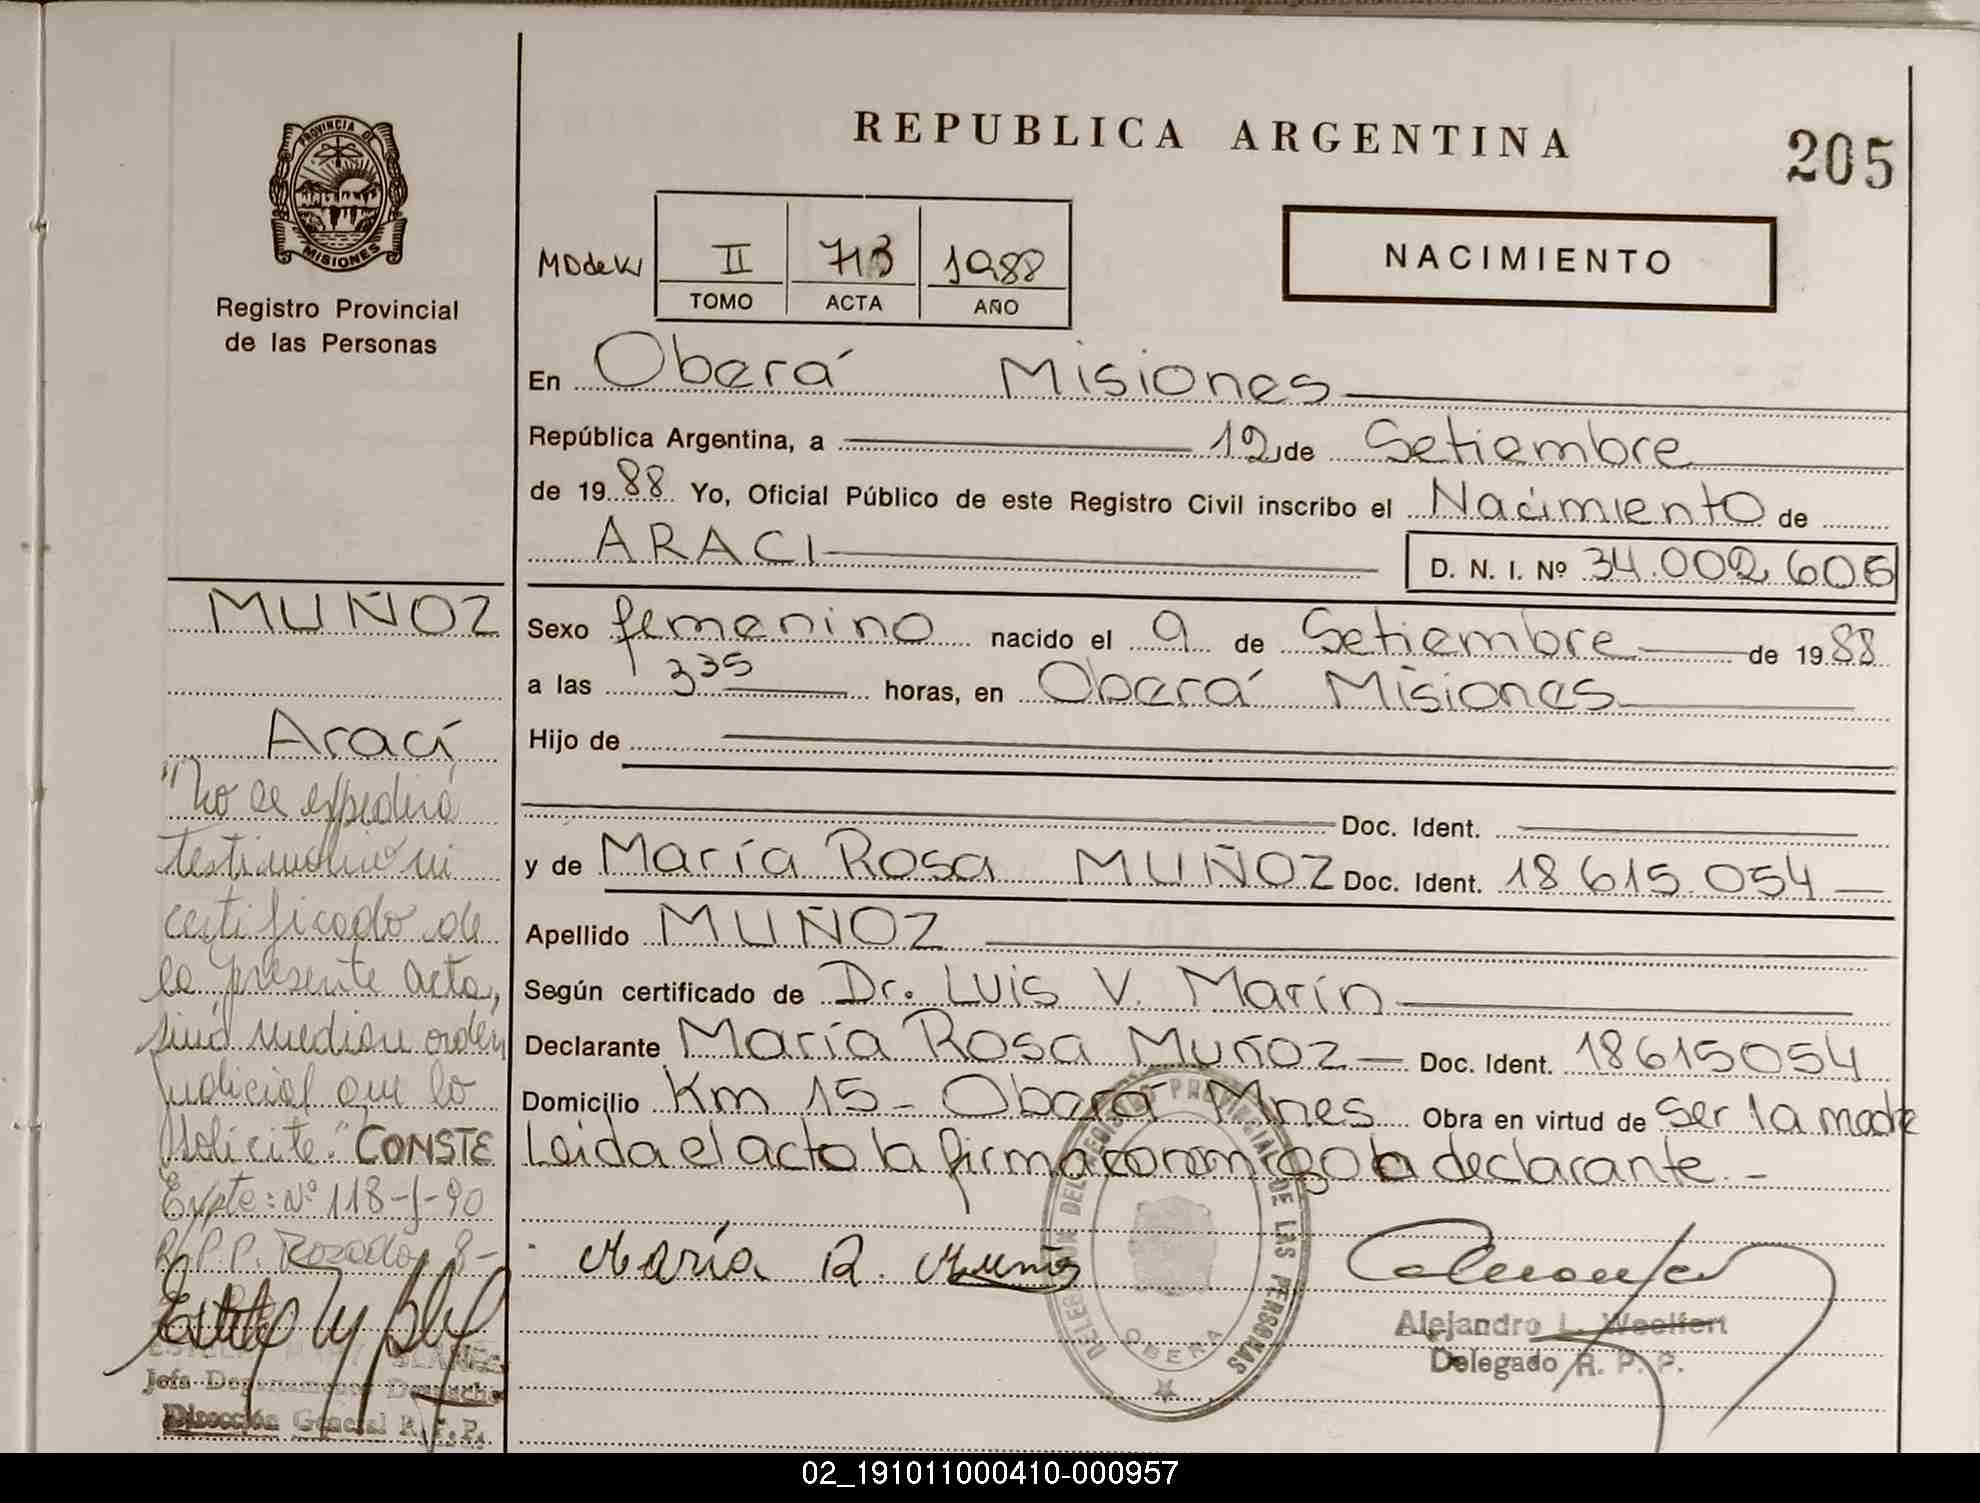 REPUBLICA ARGENTINA
205
PROVINCIA DE
MISIONES
Registro Provincial
de las Personas
II 713 1988
TOMO ACTA AÑO
NACIMIENTO
En Oberá Misiones
República Argentina, a 12 de Setiembre
de 1988 Yo, Oficial Público de este Registro Civil inscribo el Nacimiento de
ARACI
D. N. I. Nº 34.002.606
MUÑOZ
Araci
"No se expedirá
testimonio ni
certificado de
la presente acta,
sinó median orden
judicial que lo
solicite." CONSTE
Expte: Nº 118-J-90
R.P.P. Posadas, 8-
Jefa Departamento Despacho
Dirección General R.P.P.
Sexo femenino nacido el 9 de Setiembre de 1988
a las 3 35 horas, en Oberá Misiones
Hijo de
Doc. Ident.
y de María Rosa MUÑOZ Doc. Ident. 18 615 054
Apellido MUÑOZ
Según certificado de Dr. Luis V. Marín
Declarante María Rosa Muñoz Doc. Ident. 18615054
Domicilio Km 15 - Oberá Mnes Obra en virtud de ser la madre
Leida el acto la firma conmigo la declarante. -
María R. Muñoz
DELEGACION DEL REGISTRO PROVINCIAL DE LAS PERSONAS
OBERA
Alejandro L. Weelfert
Delegado R. P. P.
02_191011000410-000957